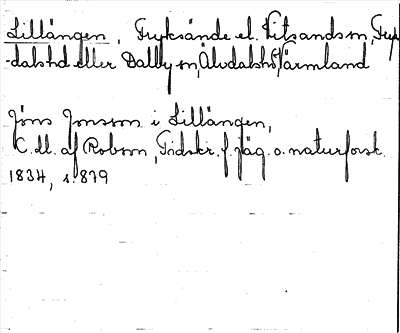 Lillängen, Fryksände el. Vitsands sn, Fryk-
-dalshd eller Dalby sn, Älvdalshd, Värmland
Jöns Jonsson i Lillängen,
C. U. af Robson, Tidskr. f. jäg. o. naturforsk.
1834, s. 879